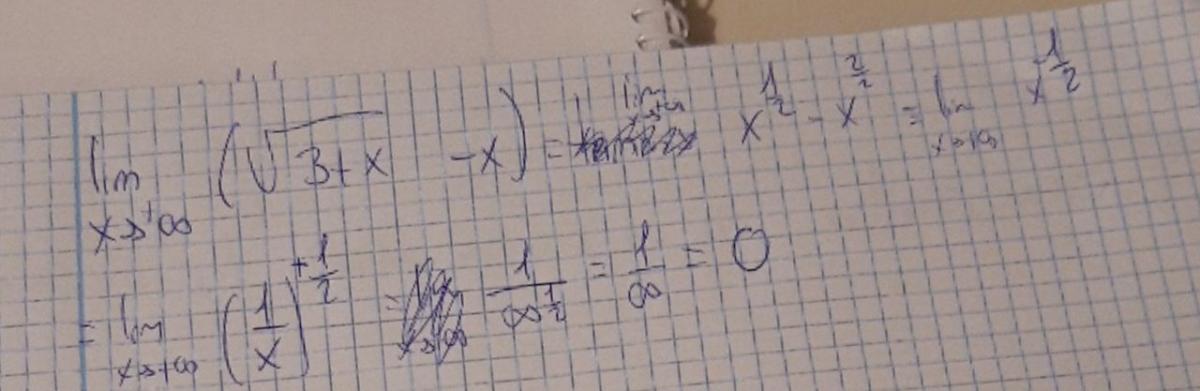 lim x→+∞ (√(3+x) - x) = lim x→+∞ x^(1/2) - x^(2/2) = lim x→+∞ x^(-1/2)
= lim x→+∞ (1/x)^(+1/2) = 1/∞^(1/2) = 1/∞ = 0